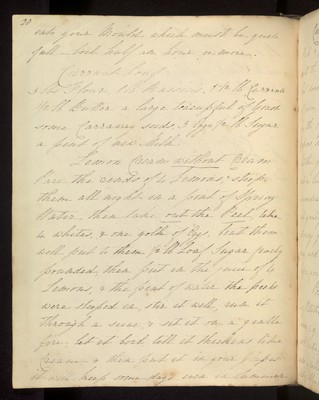 20
into your Moulds which must be quite
full – boil half an hour or more.
Currant Loaf
3 lbs Flour 1 lb Raisins, & ½ lb Currants
½ lb Butter a large teacupful of Yeast
some Carraway seeds, 3 Eggs ½ lb Sugar
a pint of new Milk.
Lemon Cream without Cream
Pare the rinds of 4 Lemons; steep
them all night in a pint of Spring
Water, then take out the Peel, take
4 whites, & one yolk of Eggs, beat them
well put to them ½ lb Loaf Sugar finely
pounded, then put in the juice of 4
Lemons, & the pint of water the peels
were steeped in, stir it well, run it
through a sieve, & set it on a gentle
fire, let it boil till it thickens like
Cream & then put it in your glasses
it will keep some days even in Summer